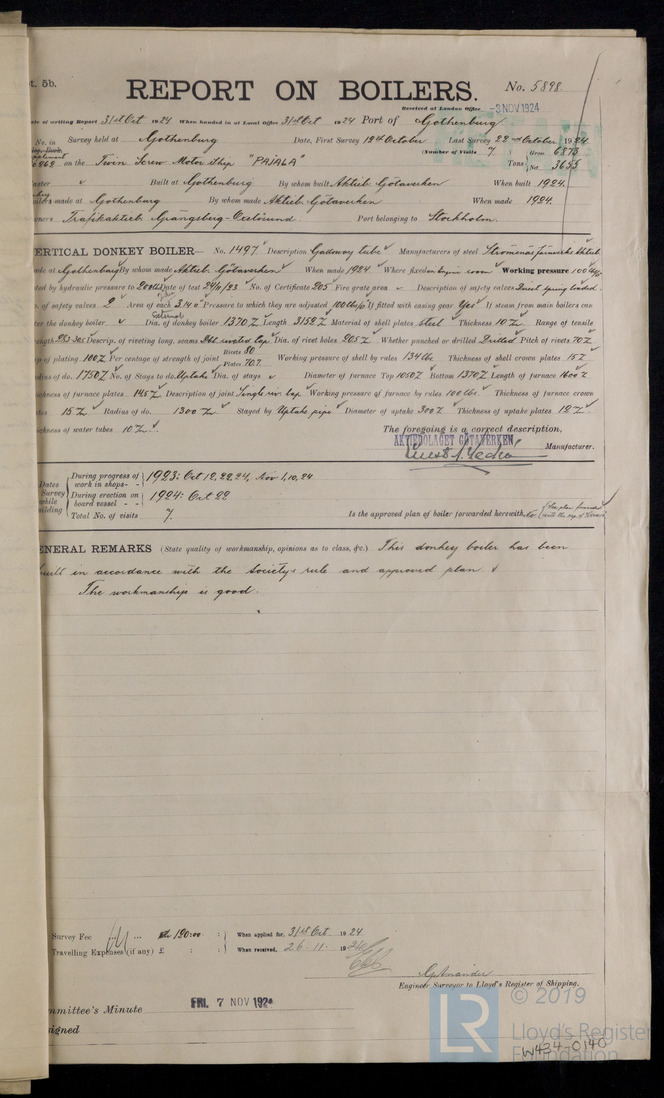 t. 5b.
REPORT ON BOILERS.
No. 5898
Received at London Office -3 NOV 1924
ate of writing Report 31st Oct 1924 When handed in at Local Office 31st Oct 1924 Port of Gothenburg
No. in Survey held at Gothenburg Date, First Survey 12th October Last Survey 22nd October 1924
(Number of Visits 7 ) Gross 6873
on the Twin Screw Motor Ship "PAJALA" Tons Net 3655
aster Built at Gothenburg By whom built Aktieb. Götaverken When built 1924.
made at Gothenburg By whom made Aktieb. Götaverken When made 1924.
ners Trafikaktieb. Grängesberg-Oxelösund. Port belonging to Stockholm.
ERTICAL DONKEY BOILER— No. 1497 Description Galloway tube Manufacturers of steel Strömsnäs Jernverks Aktieb
ade at Gothenburg By whom made Aktieb. Götaverken When made 1924 Where fixed on engine room Working pressure 100 lbs
ted by hydraulic pressure to 200 lbs Date of test 24/11/23 No. of Certificate 205 Fire grate area Description of safety valves Direct spring loaded
o. of safety valves 2 Area of each 3.14 Pressure to which they are adjusted 100 lbs If fitted with easing gear Yes If steam from main boilers can
ter the donkey boiler External Dia. of donkey boiler 1370 Length 3152 Material of shell plates Steel Thickness 10 Range of tensile
rength Descrip. of riveting long. seams Dbl. riveted lap Dia. of rivet holes 20.5 Whether punched or drilled Drilled Pitch of rivets 70
p of plating 100 Per centage of strength of joint Rivets 80 Plates 70.7 Working pressure of shell by rules 134 lbs Thickness of shell crown plates 15
adius of do. 1750 No. of Stays to do. Uptake Dia. of stays Diameter of furnace Top 1050 Bottom 1370 Length of furnace 1600
ickness of furnace plates 14.5 Description of joint Single riv. lap Working pressure of furnace by rules 100 lbs. Thickness of furnace crown
tes 15 Radius of do. 1300 Stayed by Uptake pipe Diameter of uptake 300 Thickness of uptake plates 12
ickness of water tubes 10
The foregoing is a correct description,
AKTIEBOLAGET GÖTAVERKEN
Manufacturer.
Dates Survey while building
During progress of work in shops - - 1923: Oct 12, 22, 24, Nov 1, 10, 24
During erection on board vessel - - 1924: Oct 22
Total No. of visits 7.
Is the approved plan of boiler forwarded herewith
ENERAL REMARKS (State quality of workmanship, opinions as to class, &c.) This donkey boiler has been
built in accordance with the Society's rule and approved plan &
The workmanship is good.
Survey Fee ... ... Kr 120:00 : When applied for, 31st Oct 1924
Travelling Expenses (if any) £ : : When received, 26.11. 1924
Engineer Surveyor to Lloyd's Register of Shipping.
mmittee's Minute FRI. 7 NOV 1924
signed
LR © 2019
Lloyd's Register
Foundation
W434-0140